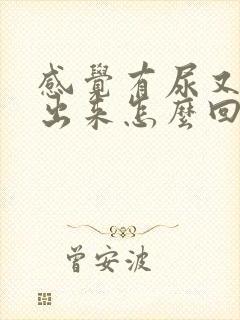 感覺有尿又
出来怎麼回
曾安波